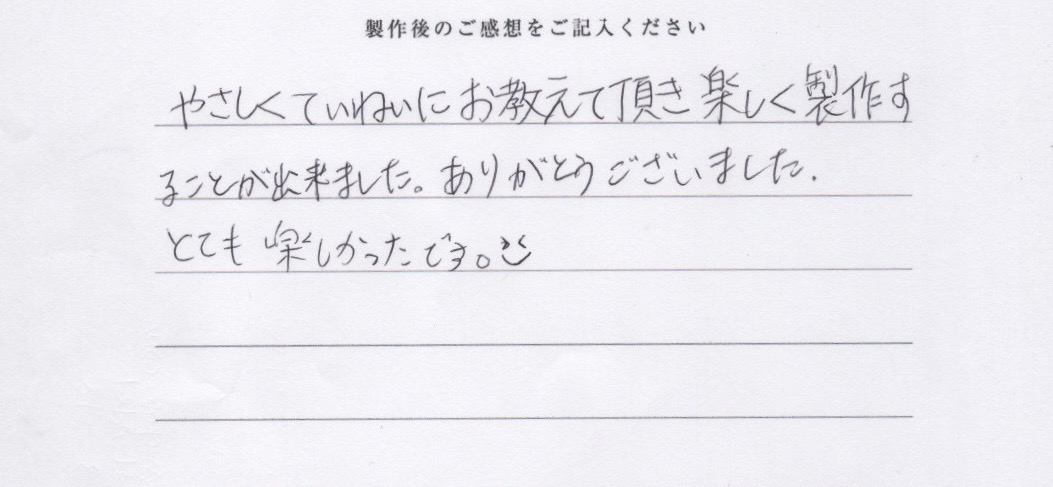 製作後のご感想をご記入ください
やさしくていねいにお教えて頂き楽しく製作す
ることが出来ました。ありがとうございました.
とても楽しかったです。